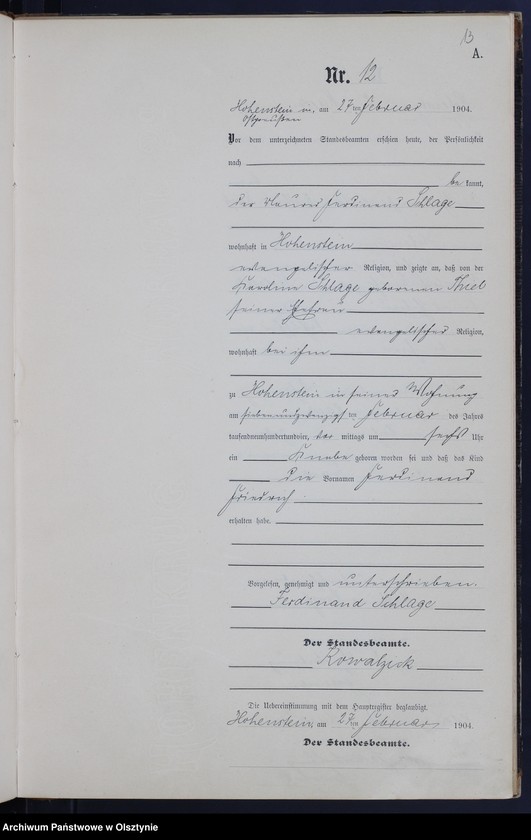 13
A.
Nr. 12
Hohenstein in, am 27ten Februar 1904.
Ostpreußen
Vor dem unterzeichneten Standesbeamten erschien heute, der Persönlichkeit
nach
be kannt,
der Maurer Ferdinand Schlage
wohnhaft in Hohenstein
evangelischer Religion, und zeigte an, daß von der
Karoline Schlage geborenen Thiel
seiner Ehefrau
evangelischer Religion,
wohnhaft bei ihm
zu Hohenstein in seiner Wohnung
am siebenundzwanzigsten Februar des Jahres
tausendneunhundertundvier, vor mittags um sechs Uhr
ein Knabe geboren worden sei und daß das Kind
die Vornamen Ferdinand
Friedrich
erhalten habe.
Vorgelesen, genehmigt und unterschrieben.
Ferdinand Schlage
Der Standesbeamte.
Kowalzick
Die Uebereinstimmung mit dem Hauptregister beglaubigt.
Hohenstein, am 27ten Februar 1904.
Der Standesbeamte.
Archiwum Państwowe w Olsztynie